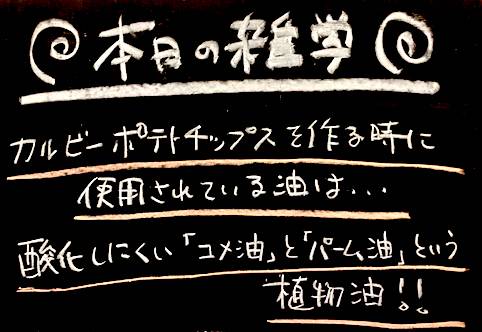 本日の雑学
カルビーポテトチップスを作る時に
使用されている油は...
酸化しにくい「コメ油」と「パーム油」という
植物油!!